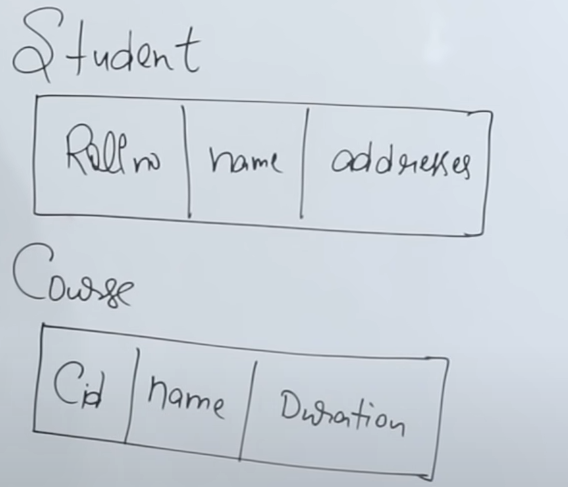 Student
Rollno name addresses
Course
Cid name Duration